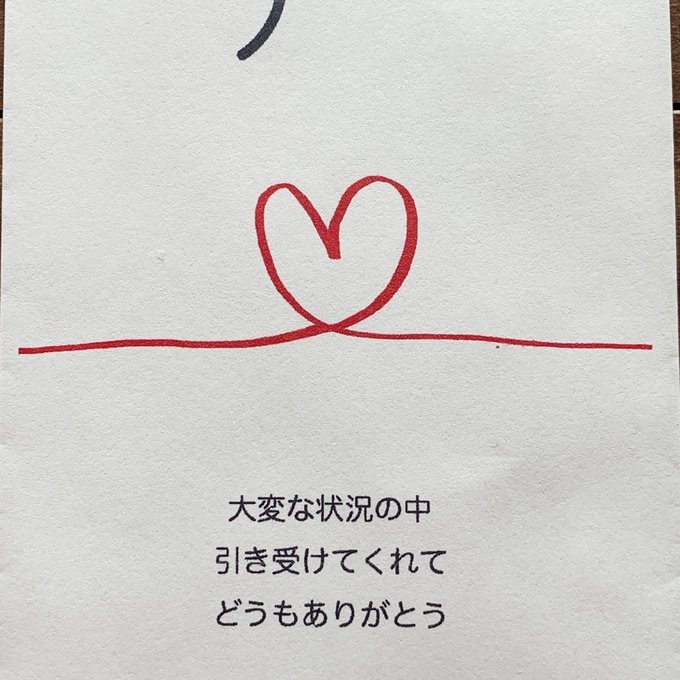 大変な状況の中
引き受けてくれて
どうもありがとう